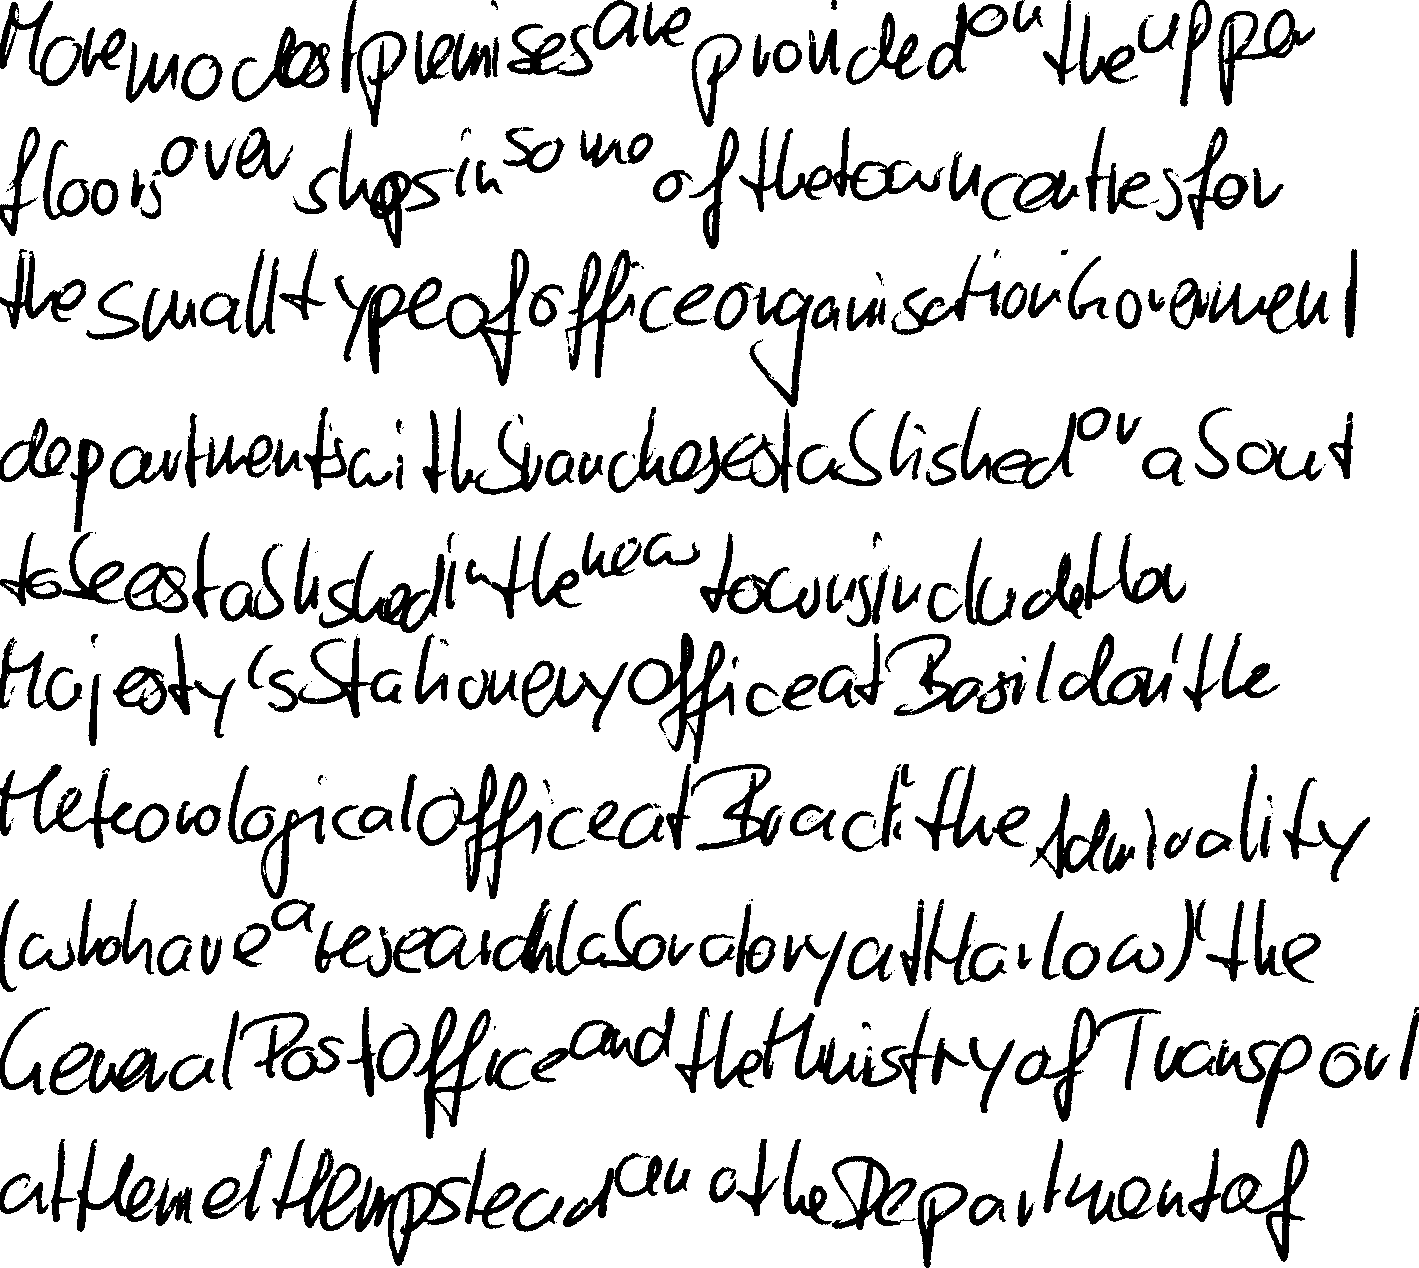 More modest premises are provided on the upper
floors over shops in some of the town centres for
the small type of office organisation Goverment
departments with branches established or about
to be established in the new towns include Her
Majesty's Stationery Office at Basildon' the
Meteorological Office at Brack' the Admirality
(who have a research laboratory at Harlow)' the
General Post Office and the Ministry of Transport
at Hemel Hempstead the Department of